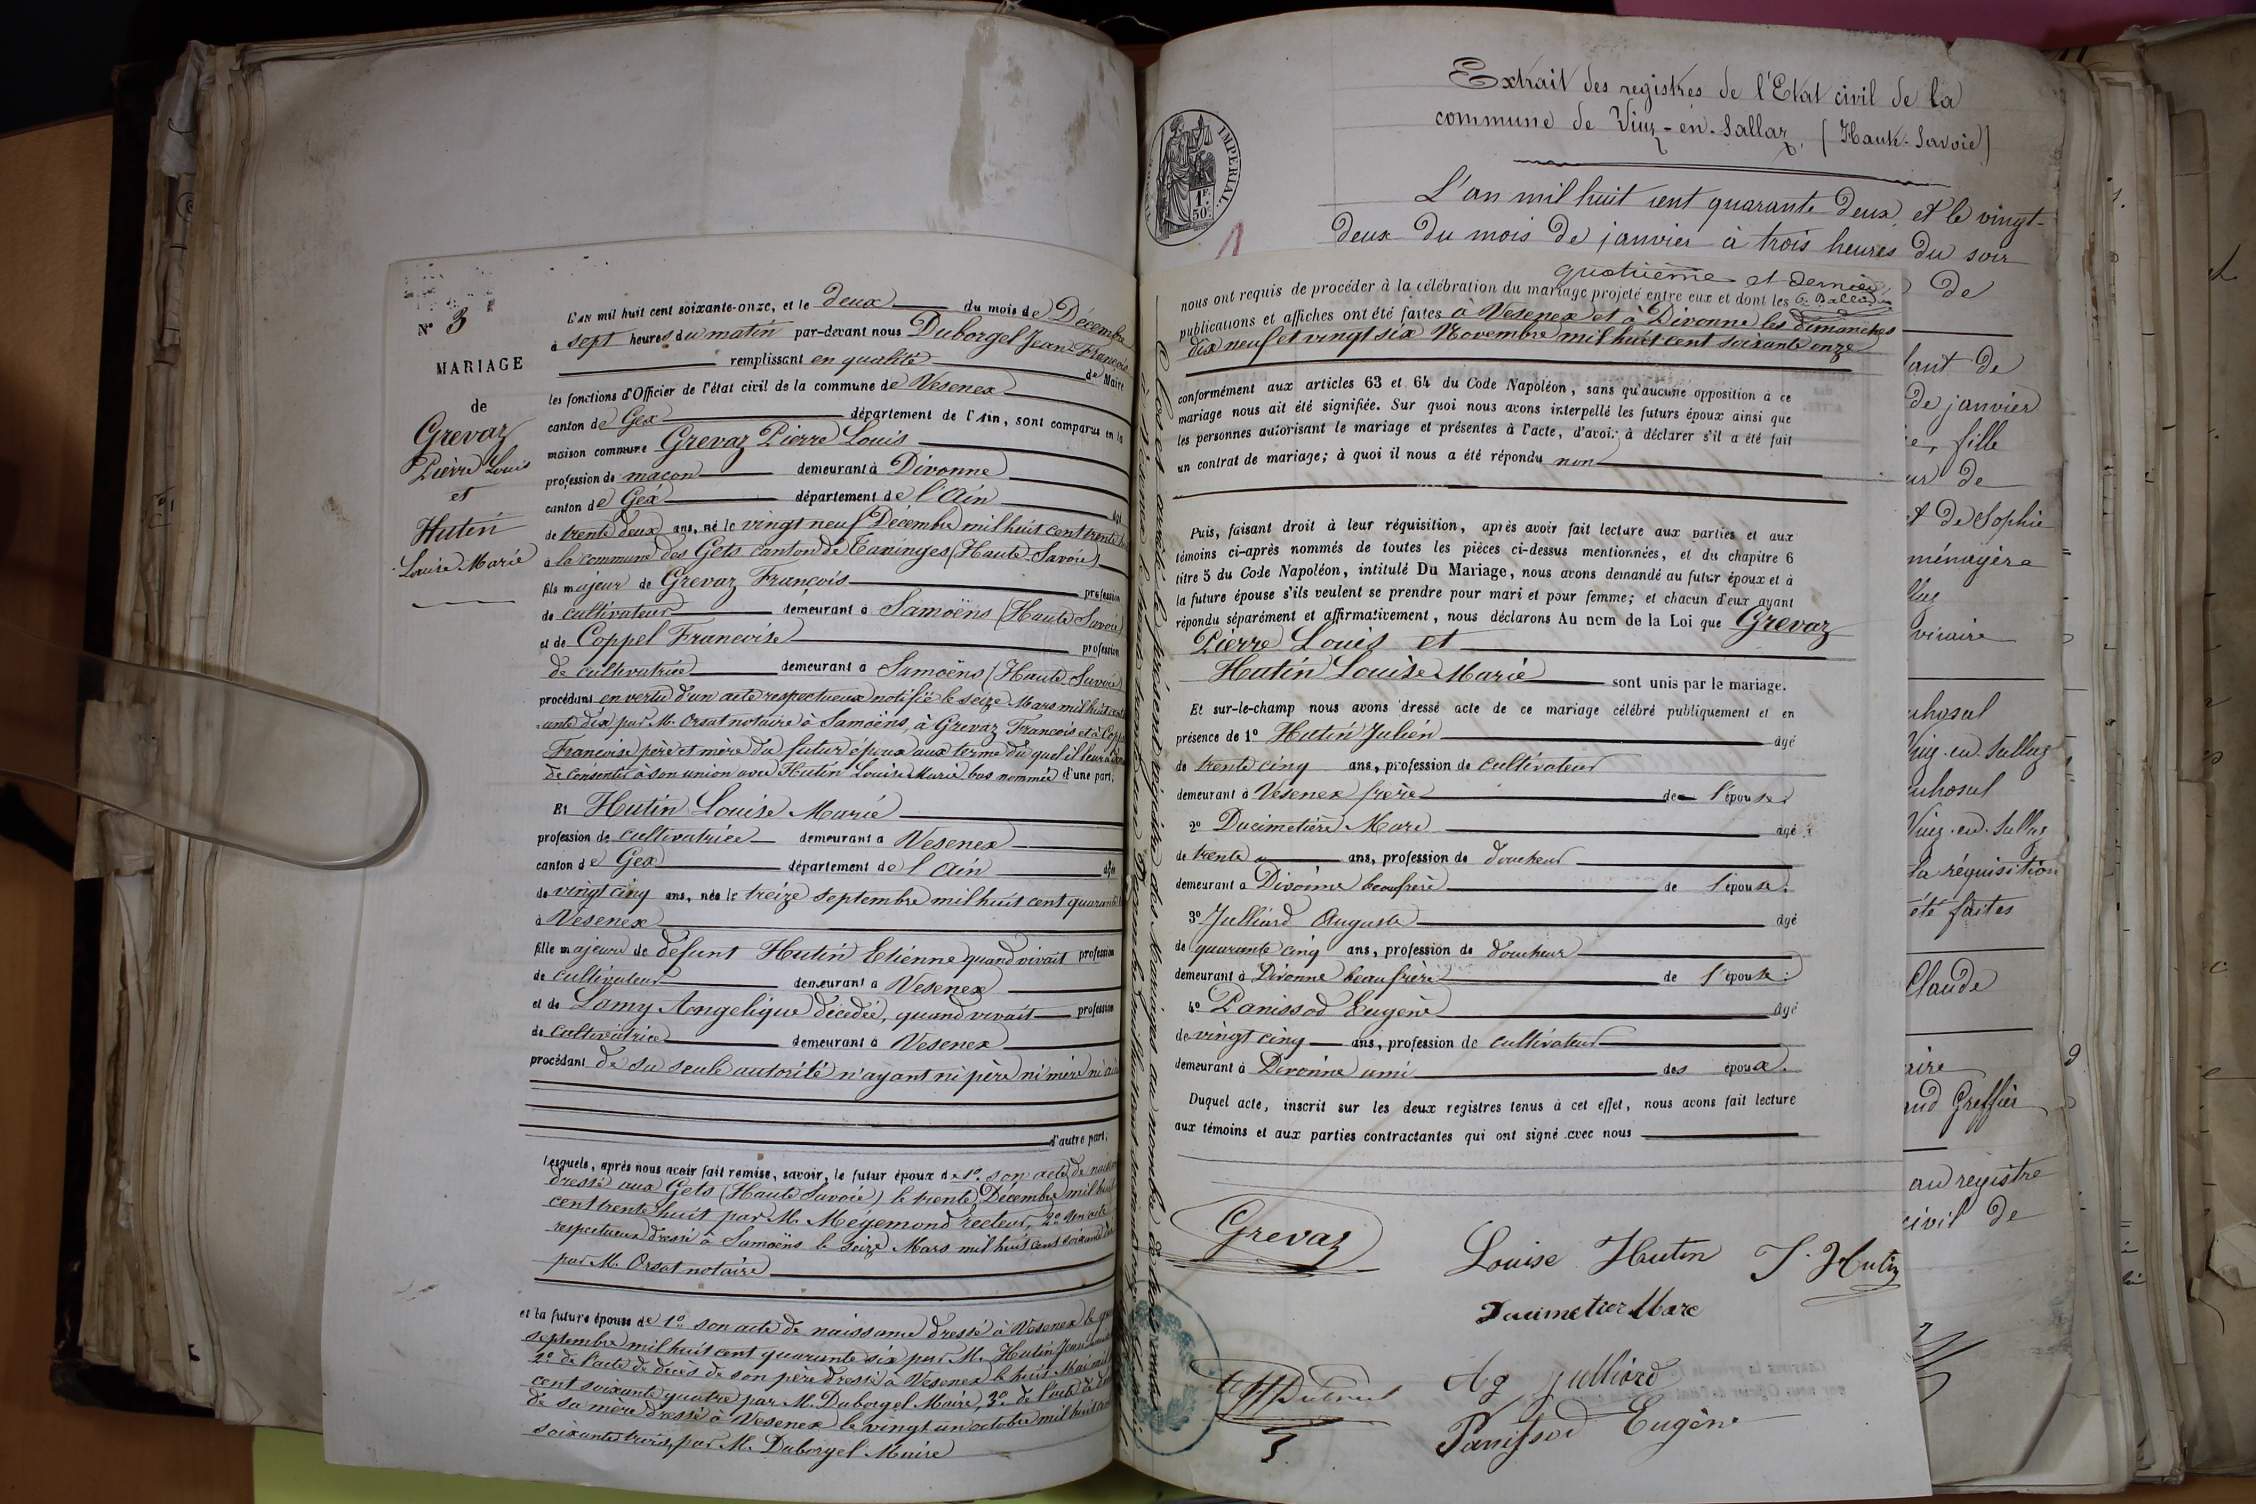 N° 3
MARIAGE
de
Grevaz
Pierre Louis
et
Hutin
Louise Marie
L'AN mil huit cent soixante-onze, et le deux du mois de Décembre
à sept heures du matin par-devant nous Duborgel Jean-François
remplissant en qualité de Maire
les fonctions d'Officier de l'état civil de la commune de Vesenex
canton de Gex département de l'Ain, sont comparus en la
maison commune Grevaz Pierre Louis
profession de maçon demeurant à Divonne
canton de Gex département de l'Ain
de trente deux ans, né le vingt neuf Décembre mil huit cent trente
à la commune des Gets canton de Taninges (Haute Savoie)
fils majeur de Grevaz François profession
de cultivateur demeurant à Samoëns (Haute Savoie)
et de Coppel Francoise profession
de cultivatrice demeurant à Samoëns (Haute Savoie)
procédant en vertu d'un acte respectueux notifié le seize Mars mil huit cent
ante dix par M. Orsat notaire à Samoëns, à Grevaz Francois et à
Francoise père et mère du futur époux aux terme du quel il leur a
de consentir à son union avec Hutin Louise Marie bas nommée d'une part,
Et Hutin Louise Marie
profession de cultivatrice demeurant à Vesenex
canton de Gex département de l'Ain
de vingt cinq ans, née le treize septembre mil huit cent quarante
à Vesenex
fille majeure de défunt Hutin Etienne quand vivait profession
de cultivateur demeurant à Vesenex
et de Lamy Angelique décédée, quand vivait profession
de cultivatrice demeurant à Vesenex
procédant de sa seule autorité n'ayant ni père ni mère ni
d'autre part,
Lesquels, après nous avoir fait remise, savoir, le futur époux de 1° son acte de
dressé aux Gets (Haute Savoie) le trente Décembre mil huit
cent trente huit par M. Mégemond recteur, 2° son acte
respectueux dressé à Samoëns le seize Mars mil huit cent soixante
par M. Orsat notaire
et la future épouse de 1° son acte de naissance dressé à Vesenex le
septembre mil huit cent quarante six par M. Hutin Jean
2° de l'acte de décès de son père dressé à Vesenex le huit Mai mil
cent soixante quatre par M. Duborgel Maire, 3° de l'acte de
de sa mère dressé à Vesenex le vingt un octobre mil huit
soixante trois, par M. Duborgel Maire
Extrait des registres de l'Etat civil de la
commune de Viuz-en-Sallaz, (Haute-Savoie)
IMPERIAL.
1F.
50c.
L'an mil huit cent quarante deux et le vingt-
deux du mois de janvier à trois heures du soir
quatrième et dernier
nous ont requis de procéder à la célébration du mariage projeté entre eux et dont les
publications et affiches ont été faites à Vesenex et à Divonne les dimanches
dix neuf et vingt six Novembre mil huit cent soixante onze
conformément aux articles 63 et 64 du Code Napoléon, sans qu'aucune opposition à ce
mariage nous ait été signifiée. Sur quoi nous avons interpellé les futurs époux ainsi que
les personnes autorisant le mariage et présentes à l'acte, d'avoir à déclarer s'il a été fait
un contrat de mariage; à quoi il nous a été répondu non
Puis, faisant droit à leur réquisition, après avoir fait lecture aux parties et aux
témoins ci-après nommés de toutes les pièces ci-dessus mentionnées, et du chapitre 6
titre 5 du Code Napoléon, intitulé Du Mariage, nous avons demandé au futur époux et à
la future épouse s'ils veulent se prendre pour mari et pour femme; et chacun d'eux ayant
répondu séparément et affirmativement, nous déclarons Au nom de la Loi que Grevaz
Pierre Louis et
Hutin Louise Marie sont unis par le mariage.
Et sur-le-champ nous avons dressé acte de ce mariage célébré publiquement et en
présence de 1° Hutin Julien âgé
de trente cinq ans, profession de cultivateur
demeurant à Vesenex frère de l'épouse.
2° Ducimetière Marc âgé
de trente ans, profession de doucheur
demeurant à Divonne beaufrère de l'épouse.
3° Julliard Auguste âgé
de quarante cinq ans, profession de doucheur
demeurant à Divonne beaufrère de l'épouse.
4° Panissod Eugène âgé
de vingt cinq ans, profession de cultivateur
demeurant à Divonne ami des époux.
Duquel acte, inscrit sur les deux registres tenus à cet effet, nous avons fait lecture
aux témoins et aux parties contractantes qui ont signé avec nous
Grevaz
Louise Hutin
J. Hutin
Ducimetier Marc
Ag Julliard
Panissod Eugène
de
de
de janvier
fille
de
de Sophie
ménagère
vicaire
Viuz-en-Sallaz
Viuz-en-Sallaz
la réquisition
été faites
Claude
Greffier
au registre
civil de